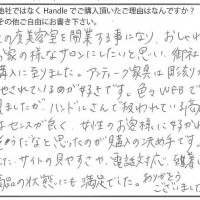 他社ではなく Handle でご購入頂いたご理由はなんですか？
その他ご自由にお書き下さい。
の度美容室を開業する事になり、おしゃれ
お家の様なサロンにしたいと思い、御社
購入に至りました。アンティーク家具は
されているのが好きです。色々WEBで
見ましたが、ハンドルさんで扱われている商
はセンスが良く、女性のお客様に好かれ
そうだなと思ったのが購入の決め手です。
た、サイトの見やすさや、電話対応、到着
商品の状態にも満足でした。ありがとう
ございました